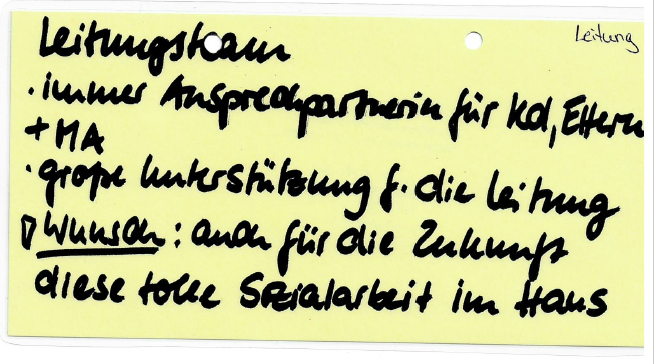 Leitung
Leitungsteam
· immer Ansprechpartnerin für Kd, Eltern
+ MA
· große Unterstützung f. die Leitung
▷ Wunsch: auch für die Zukunft
diese tolle Sozialarbeit im Haus